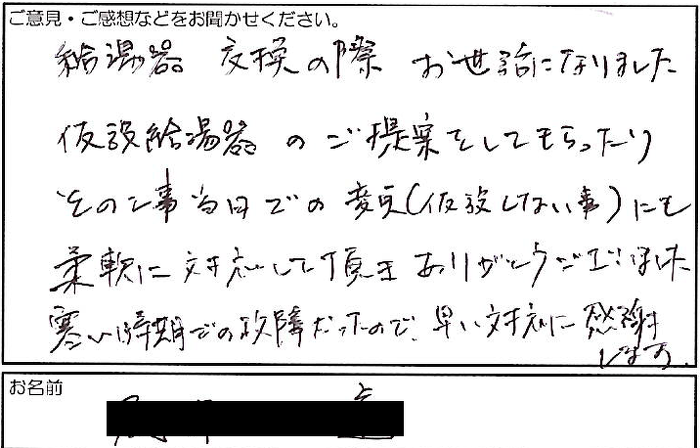 ご意見・ご感想などをお聞かせください。
給湯器 交換の際 お世話になりました
仮設給湯器のご提案をしてもらったり
その工事当日での変更(仮設しない事)にも
柔軟に対応して頂き ありがとうございました
寒い時期での故障だったので、早い対応に感謝
します。
お名前